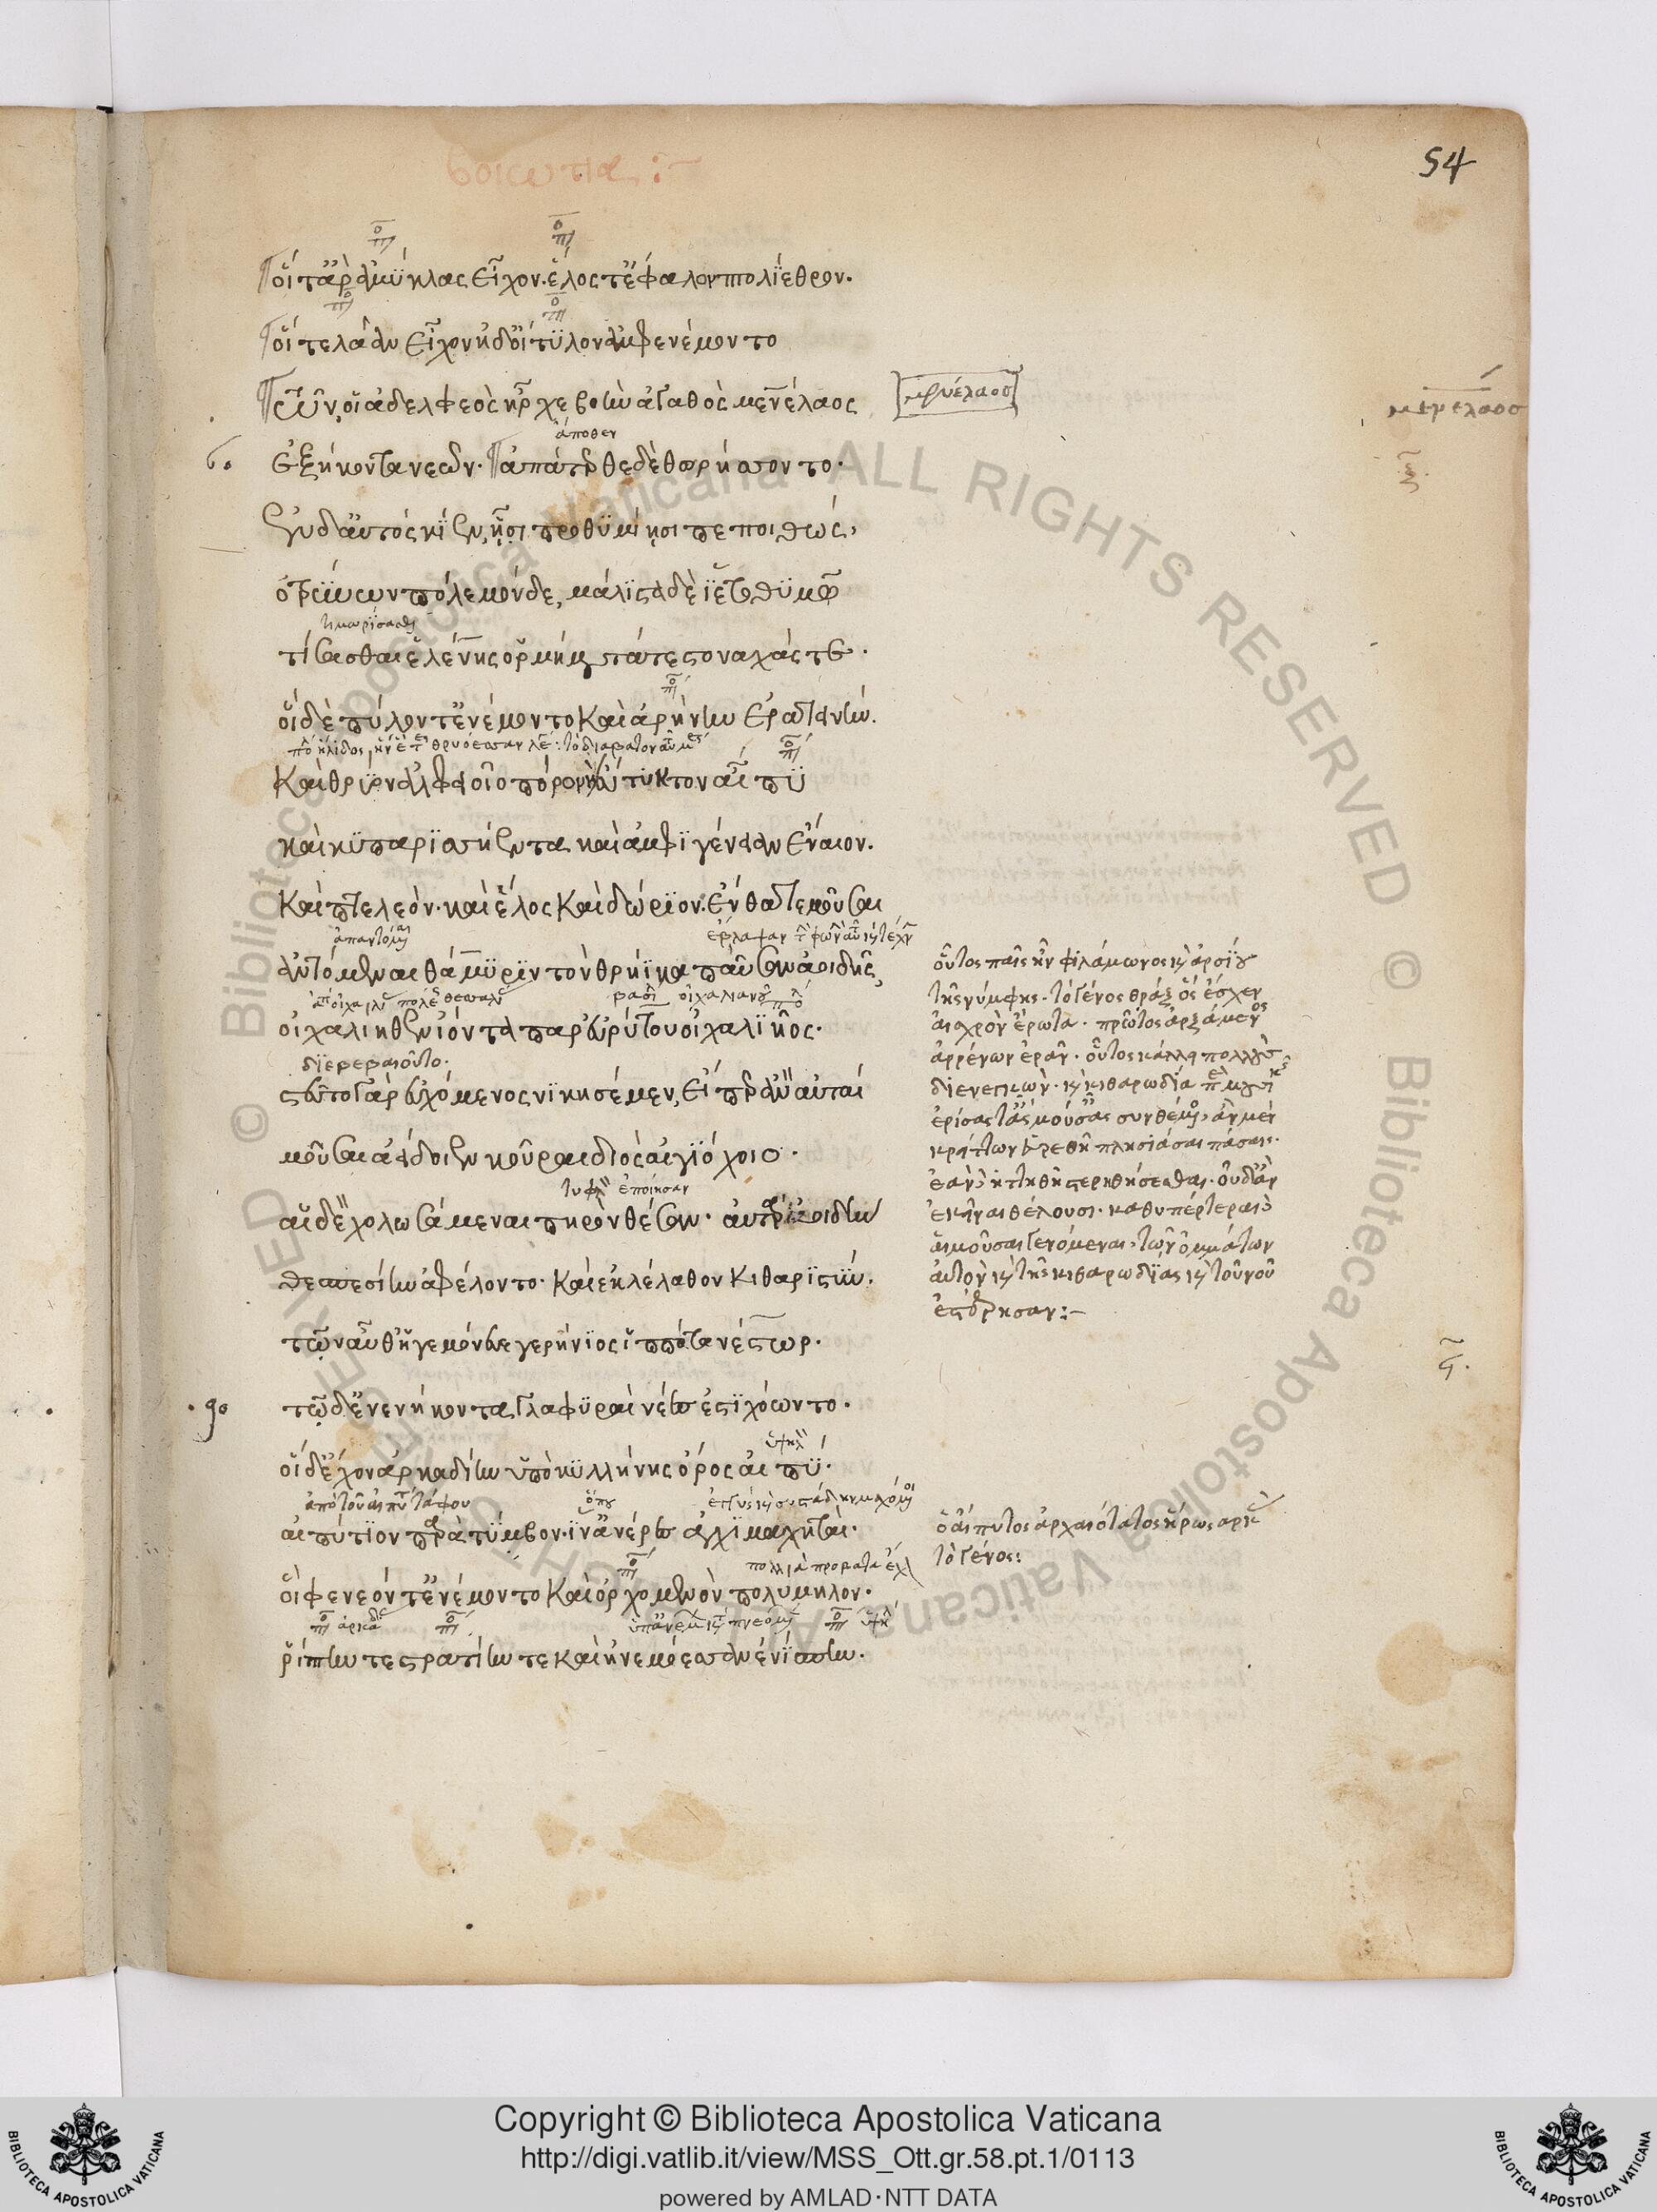 βοιωτία :~
54
οἵ τ' ἂρ ἀμύκλας εἶχον. ἕλος τ' ἔφαλον πτολίεθρον.
οἵ τε λάαν εἶχον ἠδ' οἴτυλον ἀμφενέμοντο
τῶν οἱ ἀδελφεὸς ἦρχε βοὴν ἀγαθὸς μενέλαος
μενέλαος
μενέλαος
ἄποθεν
ξ. ἑξήκοντα νεῶν. ἀπάτερθε δὲ θωρήσσοντο.
ἐν δ' αὐτὸς κίεν, ᾗσι προθυμίῃσι πεποιθώς,
ὀτρύνων πόλεμόνδε, μάλιστα δὲ ἵετο θυμῷ
τιμωρήσασθαι
τίσασθαι ἑλένης ὁρμήματά τε στοναχάς τε.
οἳ δὲ πύλον τ' ἐνέμοντο καὶ ἀρήνην ἐρατεινήν.
καὶ θρύον ἀλφειοῖο πόρον καὶ ἐΰκτιτον αἰπύ
καὶ κυπαρισσήεντα καὶ ἀμφιγένειαν ἔναιον.
καὶ πτελεὸν. καὶ ἕλος καὶ δώριον. ἔνθά τε μοῦσαι
ἀντόμεναι θάμυριν τὸν θρήϊκα παῦσαν ἀοιδῆς,
οἰχαλίηθεν ἰόντα παρ' εὐρύτου οἰχαλιῆος.
διεβεβαιοῦτο.
στεῦτο γὰρ εὐχόμενος νικησέμεν, εἴπερ ἂν αὐταὶ
μοῦσαι ἀείδοιεν κοῦραι διὸς αἰγιόχοιο.
τυφλὸν ἐποίησαν
αἳ δὲ χολωσάμεναι πηρὸν θέσαν. αὐτὰρ ἀοιδὴν
θεσπεσίην ἀφέλοντο. καὶ ἐκλέλαθον κιθαριστύν.
τῶν αὖθ' ἡγεμόνευε γερήνιος ἱππότα νέστωρ.
ϟ. τῷ δ' ἐνενήκοντα γλαφυραὶ νέες ἐστιχόωντο.
ὑψηλὸν
οἳ δ' ἔχον ἀρκαδίην ὑπὸ κυλλήνης ὄρος αἰπύ.
ὅπου
αἰπύτιον παρὰ τύμβον. ἵν' ἀνέρες ἀγχιμαχηταί.
πολλὰ πρόβατα ἔχον
οἳ φενεόν τ' ἐνέμοντο καὶ ὀρχομενὸν πολύμηλον.
ῥίπην τε στρατίην τε καὶ ἠνεμόεσσαν ἐνίσπην.
οὗτος παῖς ἦν φιλάμωνος καὶ ἀρσιό
τῆς νύμφης. τὸ γένος θρᾷξ ὃς ἔσχεν
αἰσχρὸν ἔρωτα. πρῶτος ἀρξάμενος
ἀρρένων ἐρᾶν. οὗτος κάλλει πολλῶν
διενεγκὼν. καὶ κιθαρωδία
ἐρίσας τὰς μούσας συνθέμενος, ἂν μὲν
κρείττων εὑρεθῇ πλησιάσαι πάσαις.
ἐὰν δὲ ἡττηθῇ στερηθήσεσθαι. οὗ ἂν
ἐκεῖναι θέλουσι. καθυπέρτεραι δὲ
αἱ μοῦσαι γενόμεναι, τῶν ὀμμάτων
αὐτὸν καὶ τῆς κιθαρωδίας καὶ τοῦ νοῦ
ἐστέρησαν:-
ὁ αἴπυτος ἀρχαιότατος ἥρως ἀρκὰς
τὸ γένος:
Copyright © Biblioteca Apostolica Vaticana
http://digi.vatlib.it/view/MSS_Ott.gr.58.pt.1/0113
powered by AMLAD·NTT DATA
BIBLIOTECA APOSTOLICA VATICANA
BIBLIOTECA APOSTOLICA VATICANA
Biblioteca Apostolica Vaticana ALL RIGHTS RESERVED ©